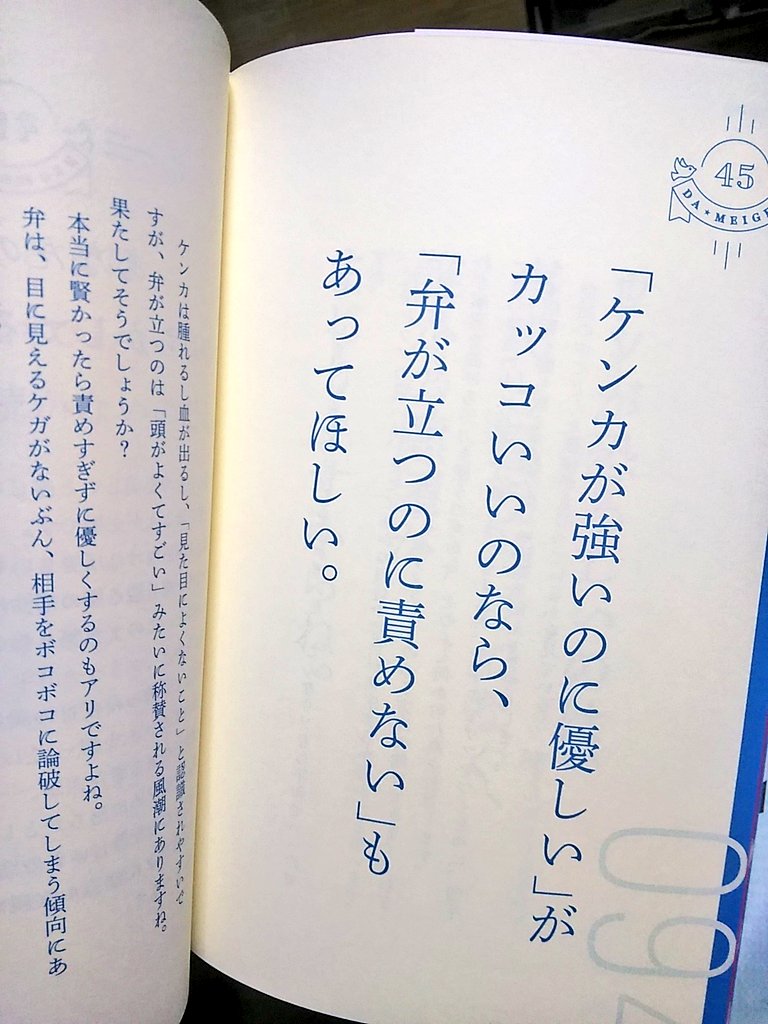 45
DA★MEIGE
「ケンカが強いのに優しい」が
カッコいいのなら、
「弁が立つのに責めない」も
あってほしい。
ケンカは腫れるし血が出るし、「見た目によくないこと」と認識されやすいで
すが、弁が立つのは「頭がよくてすごい」みたいに称賛される風潮にありますね。
果たしてそうでしょうか？
本当に賢かったら責めすぎずに優しくするのもアリですよね。
弁は、目に見えるケガがないぶん、相手をボコボコに論破してしまう傾向にあ